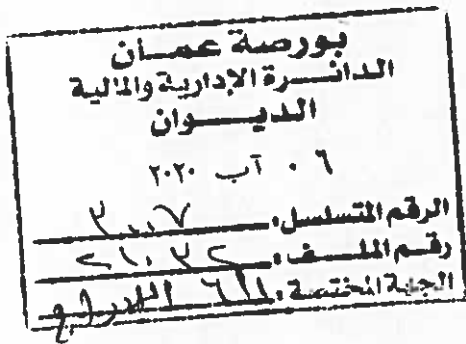 بورصة عمان
الدائرة الإدارية والمالية
الديوان
٠٦ آب ٢٠٢٠
الرقم المتسلسل: ٣٠٠٧
رقم الملف: ٢١٠٣٢
الجهة المختصة: